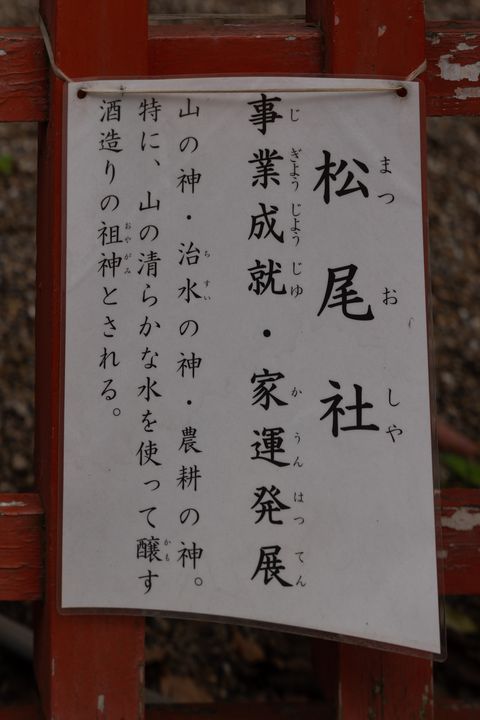 松尾社
まつおしや
事業成就・家運発展
じぎようじようじゆかうんはつてん
山の神・治水の神・農耕の神。
ちすい
特に、山の清らかな水を使って醸す
かも
酒造りの祖神とされる。
おやがみ